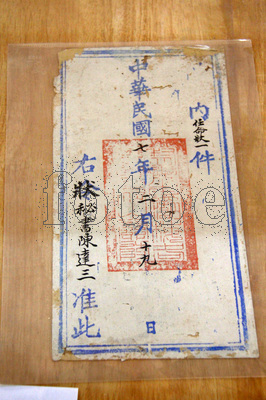 內任命狀一件
中華民國七年二月十九日
右狀秘書陳達三准此
fotoe